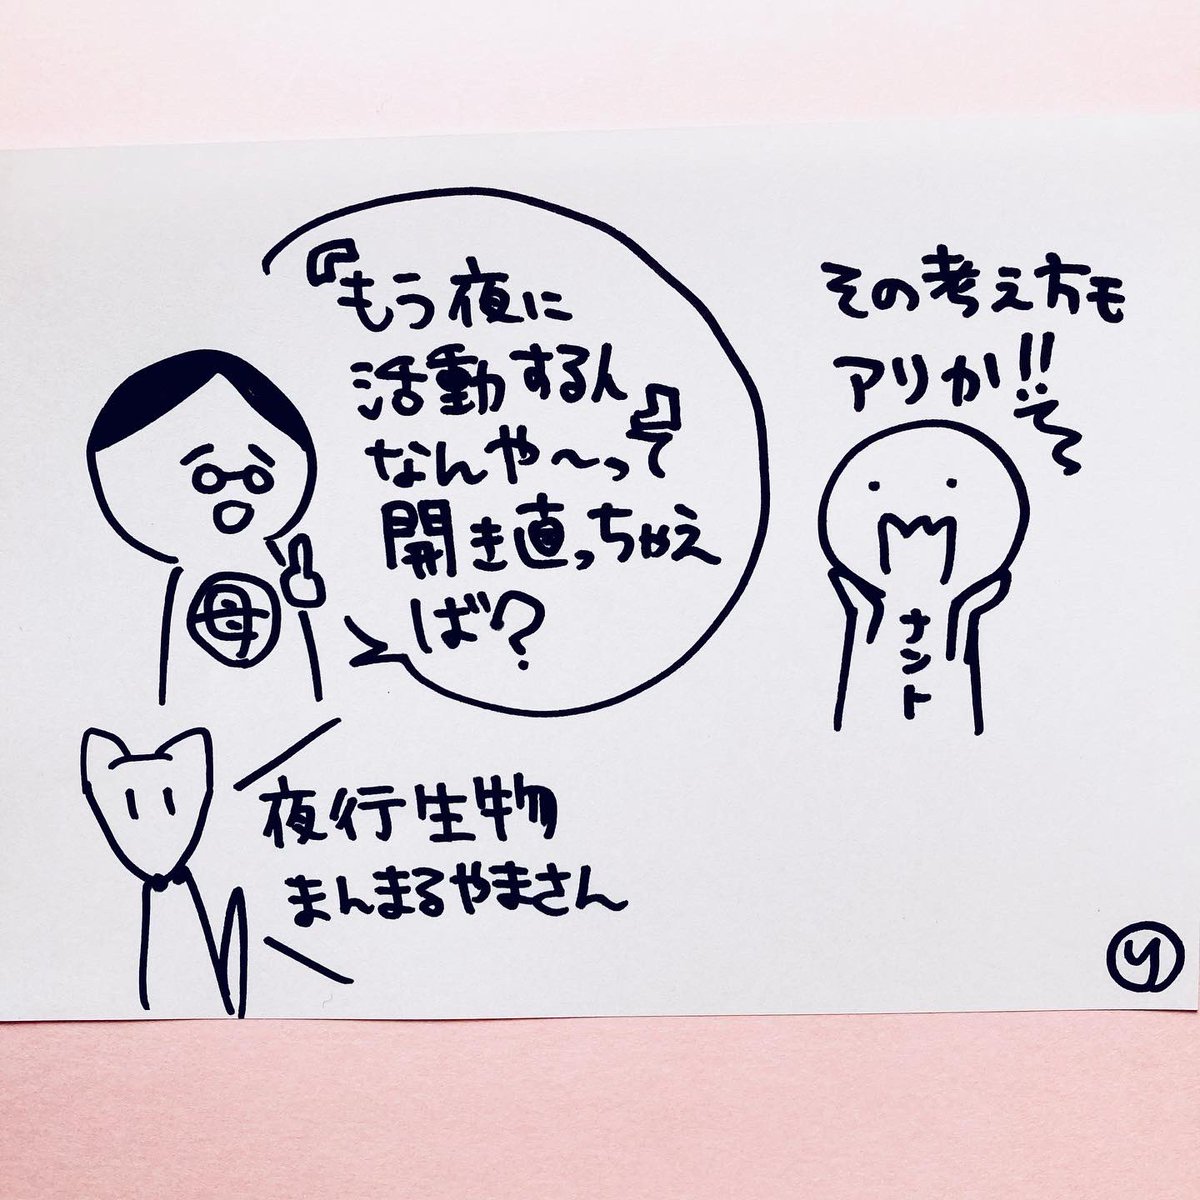 『もう夜に
活動するん
なんや〜』って
開き直っちゃえ
ば?
母
その考え方も
アリか!!
ナント
夜行生物
まんまるやまさん
y